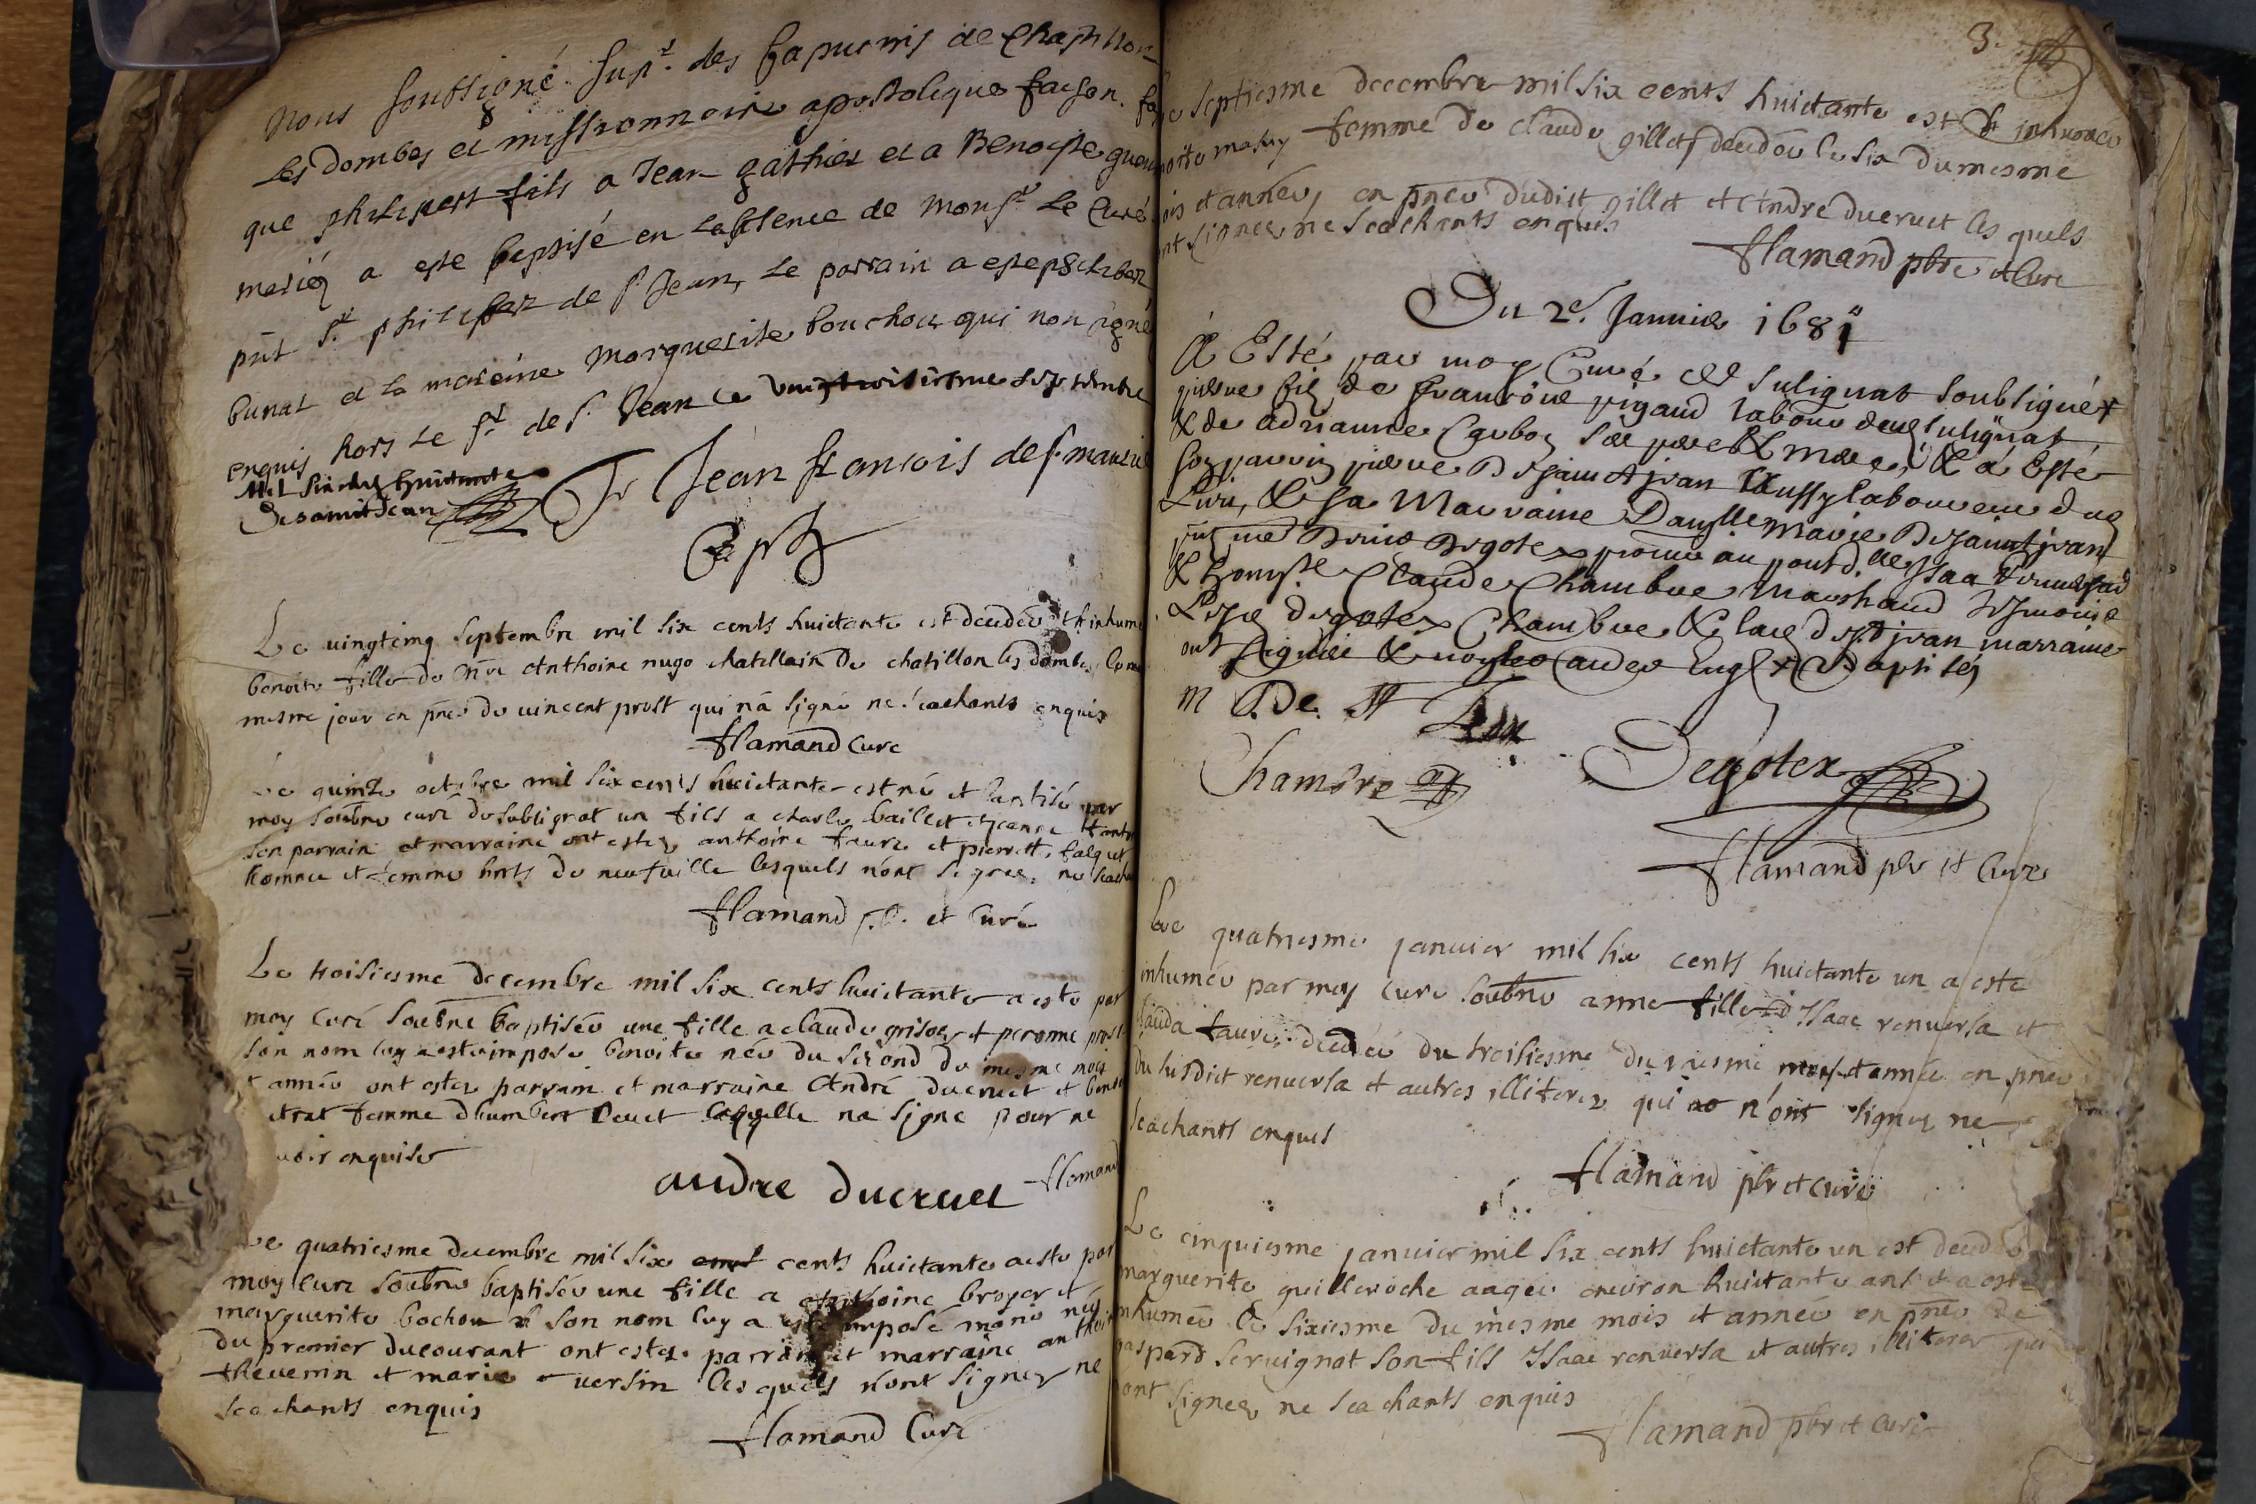 Nous soussigné sup.r des Capucins de Chastillon
Les dombes et missionnaire apostolique faison. foy
que philipert fils a Jean gathier et a Benoiste
a este baptisé en labsence de Mons.r Le Curé
pñt S.r philipert de S.t Jean, Le parrain a este philibert
bunat et la mareine Marguerite bouchou qui non signé
enquis hors le S.r de S.t Jean ce vingtroisiesme septembre
Mil six cens huictante
Desainct Jean f. Jean francois de s.t
Cap.
Le vingtcinq septembre mil six cents huictante est decedée et inhumé
benoite fille de Me Anthoine nugo chatellain de chatillon les dombes le
mesme jour en pñce de vincent prost qui n'a signé ne scachants enquis
flamand Curé
Le quinze octobre mil six cents huictante est né et baptisé par
moy soubné curé de sulignat un fils a charle baillet et Jeanne
son parrain et marraine ont estez anthoine faure et pierrette falquet
homme et femme hrts de neufville lesquels n'ont signes, ne scachants
flamand p. et Curé
Le troisiesme decembre mil six cents huictante a esté par
moy curé soubné baptisée une fille a claude grisoz et peronne prost
son nom luy a esté imposé benoite née du second du mesme mois
et année ont estez parrain et marraine André ducruet et benoite
femme d'humbert laquelle na signé pour ne
scavoir enquise
andre ducruet flamand
Le quatriesme decembre mil six cents huictante a esté par
moy curé soubné baptisée une fille a Anthoine broyer et
marguerite bochon son nom luy a esté imposé marie née
du premier du courant ont estez parrain et marraine anthoine
thevenin et marie versin les quels n'ont signez ne
scachants enquis
flamand Curé
3.
Le septiesme decembre mil six cents huictante est inhumée
benoite femme de claude gillet decedée le six du mesme
mois et année, en pñce dudict gillet et André ducruet les quels
n'ont signer ne scachants enquis
flamand pbre et Curé
Du 2e. Janvier 1681
A Esté par moy Curé de sulignat soubsigné
pierre filz de francois pigaud laboureur de sulignat
& de adrianne Carboz ses pere & mere, & a Esté
son parrin pierre Desainctjean laboureur dud
Lieu, & sa Marraine Damlle Marie Desainctjean
pñt me Degotex
& honeste Claude Chambre Marchand
Lesd degotex Chambre & lad de st jean marraine
ont signés & non les autres Enq
M De st Jean
Chambre Degotex
flamand pbr et Curé
Le quatriesme janvier mil six cents huictante un a esté
inhumée par moy curé soubné anne fille d'Isaac renversa et
clauda faure decedée du troisiesme du mesme mois et année en pñce
du susdict renversa et autres illiterez qui n'ont signez ne
scachants enquis
flamand pbr et curé
Le cinquiesme janvier mil six cents huictante un est decedée
marguerite guilleroche aagée environ huictante ans et a esté
inhumée le sixiesme du mesme mois et année en pñce de
gaspard servignat son fils Isaac renversa et autres illiterez qui
n'ont signez ne scachants enquis
flamand pbr et Curé